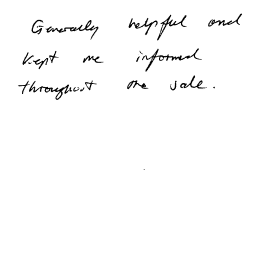 Generally helpful and
kept me informed
throughout the sale.